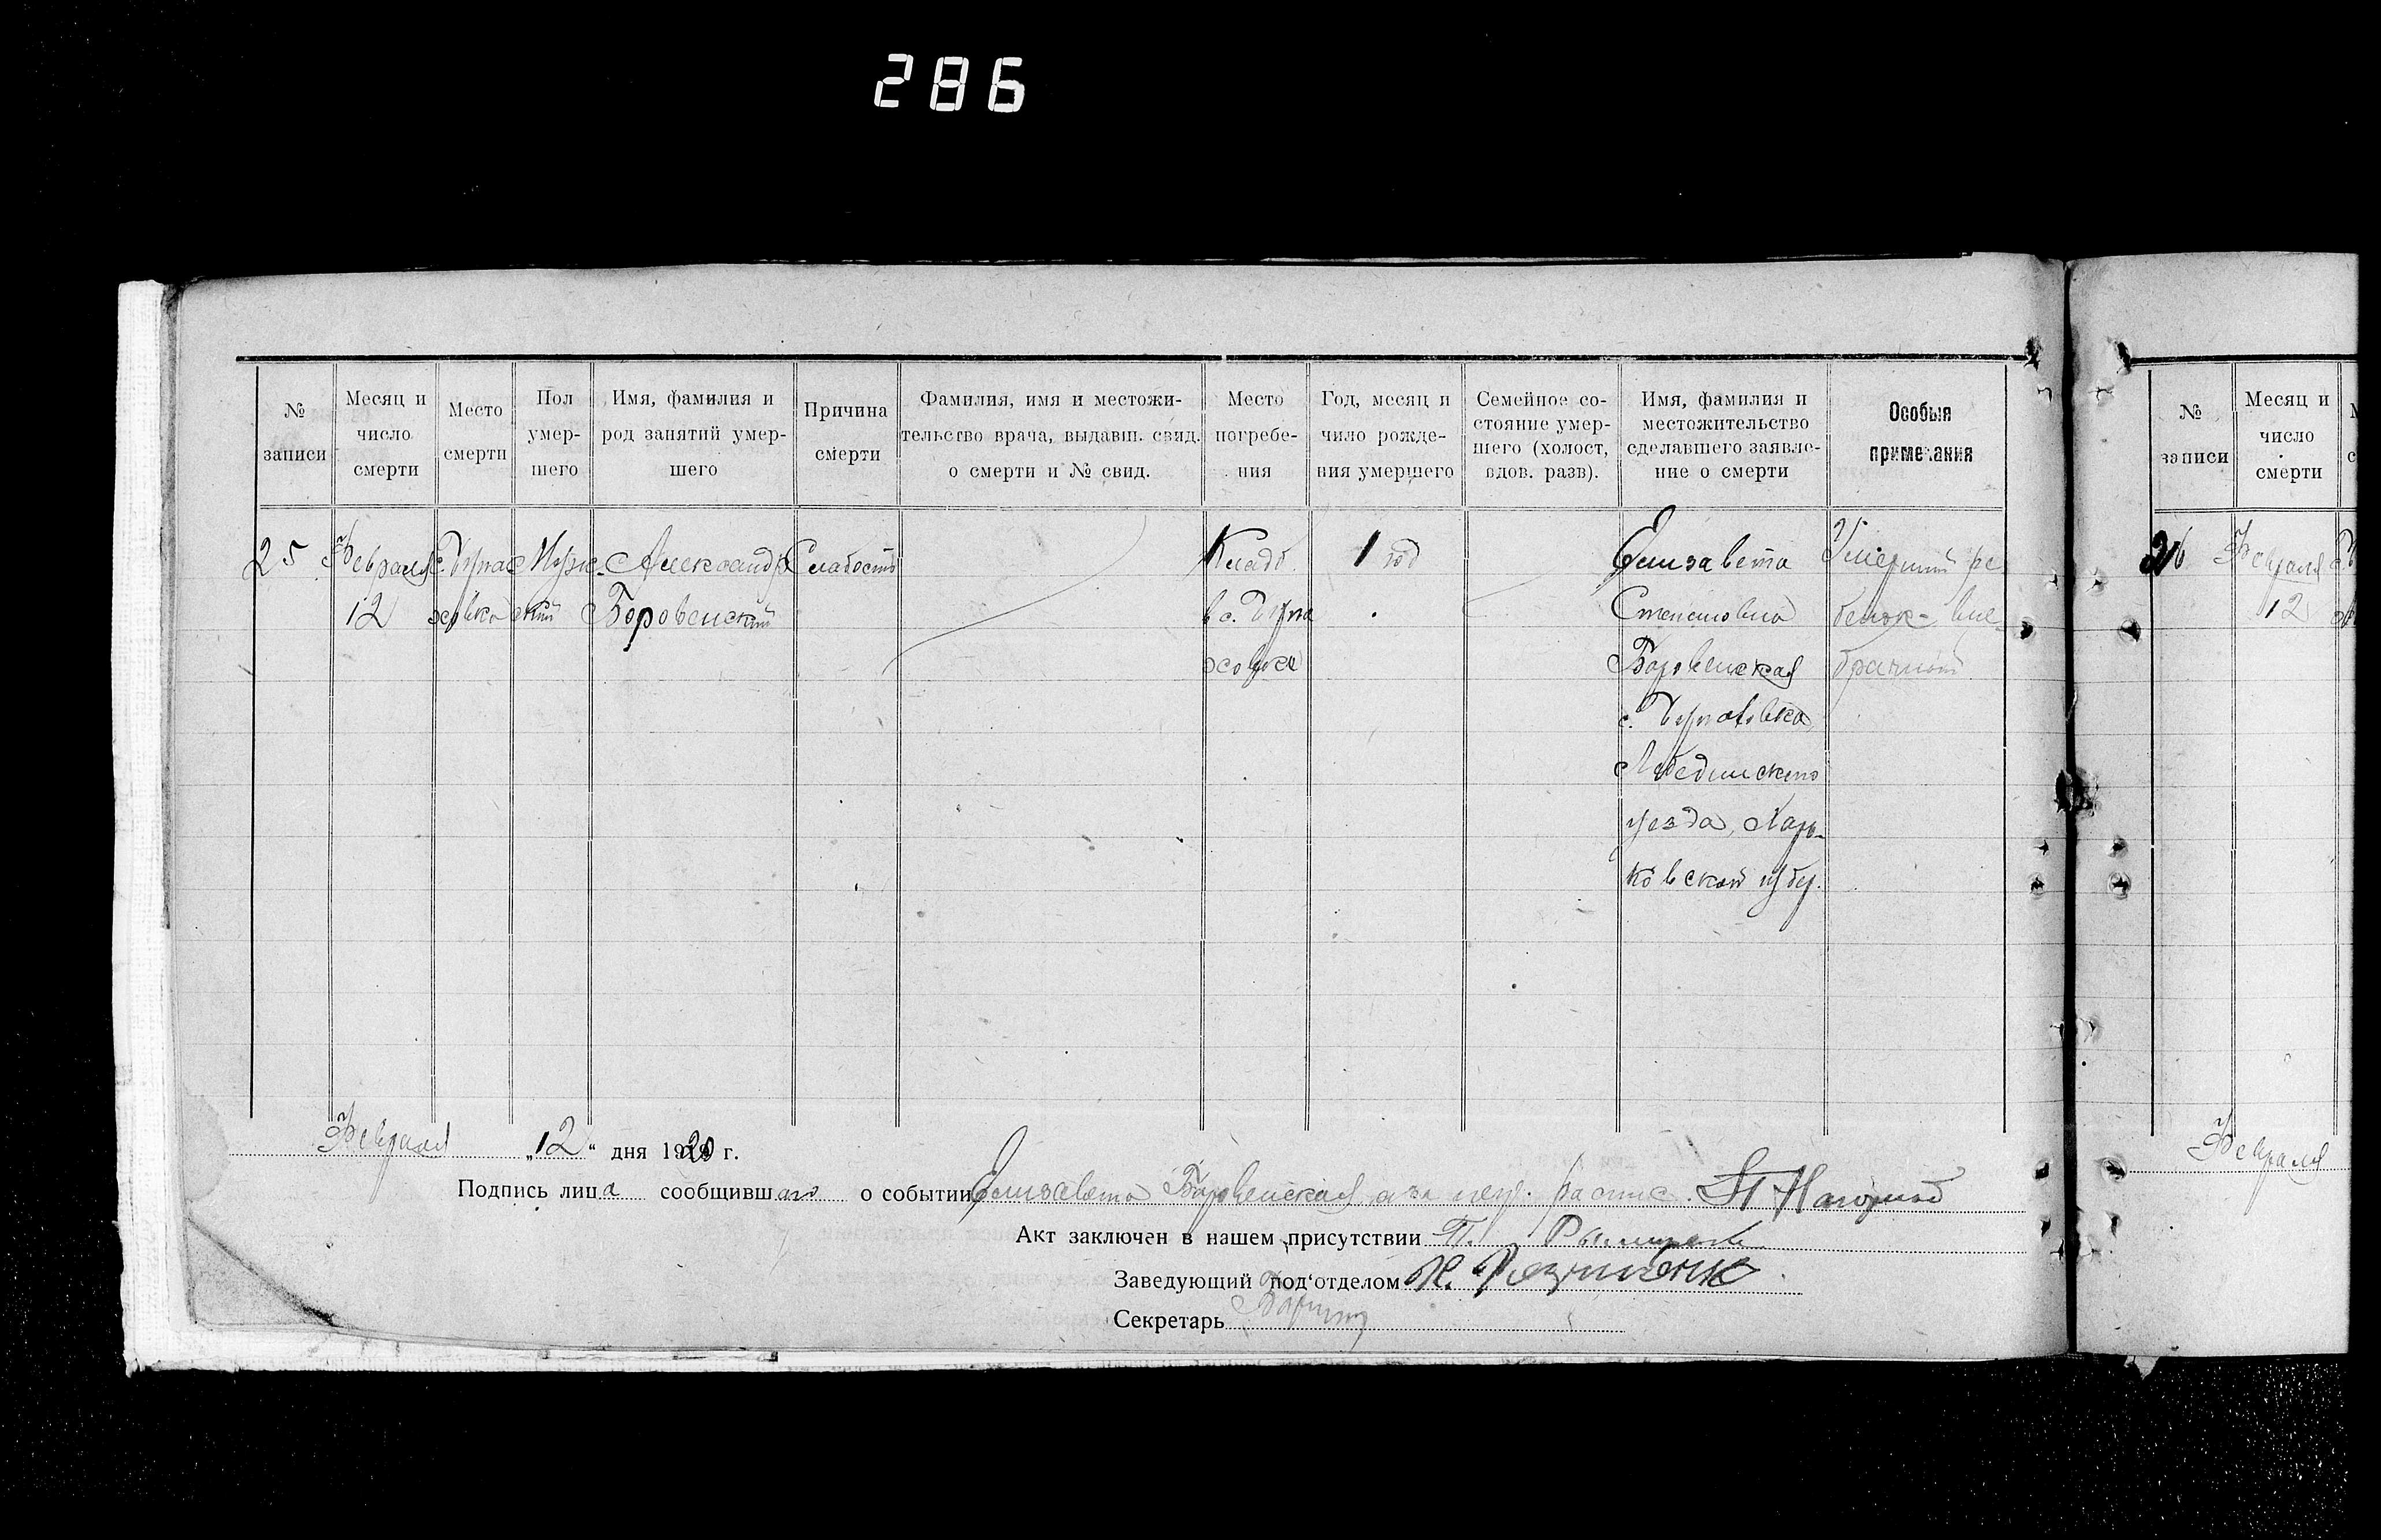 286
№ записи
Месяц и число смерти
Место смерти
Пол умер- шего
Имя, фамилия и род занятий умер- шего
Причина смерти
Фамилия, имя и местожи- тельство врача, выдавш. свид. о смерти и № свид.
Место погребе- ния
Год, месяц и чило рожде- ния умершего
Семейное со- стояние умер- шего (холост, вдов. разв).
Имя, фамилия и местожительство сделавшего заявле- ние о смерти
Особыя примечания
25
Февраля
12
Муж-
ской
Александр
Боровенский
Слабость
Кладб.
в с.
1 год
Елизавета
Степановна
Боровенская
с.
Лебединского
уезда, Харь-
ковской губер.
Умерший ре-
бенок - вне-
брачный
Февраля „12“ дня 1920 г.
Подпись лица сообщившаго о событии Елизавета Боровенская, а за негр. распис.
Акт заключен в нашем присутствии П.
Заведующий под'отделом
Секретарь
№ записи
Месяц и число смерти
26
Февраля
12
Февраля